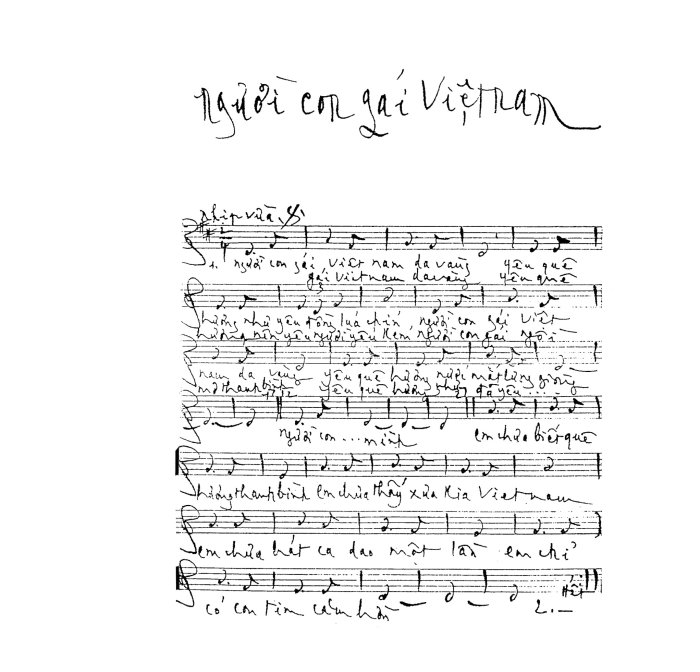 người con gái Việt nam
nhịp vừa
1. người con gái Việt nam da vàng yêu quê
gái Việt nam da vàng yêu quê
hương như yêu đồng lúa chín người con gái Việt
hương nên yêu người yếu kém người con gái ngồi
nam da vàng yêu quê hương nước mắt lưng giòng
mơ thanh bình yêu quê hương như đã yêu...
người con ... mình em chưa biết quê
hương thanh bình em chưa thấy xưa kia Việt nam
em chưa hát ca dao một lần em chỉ
có con tim căm hờn 2. —
Hết